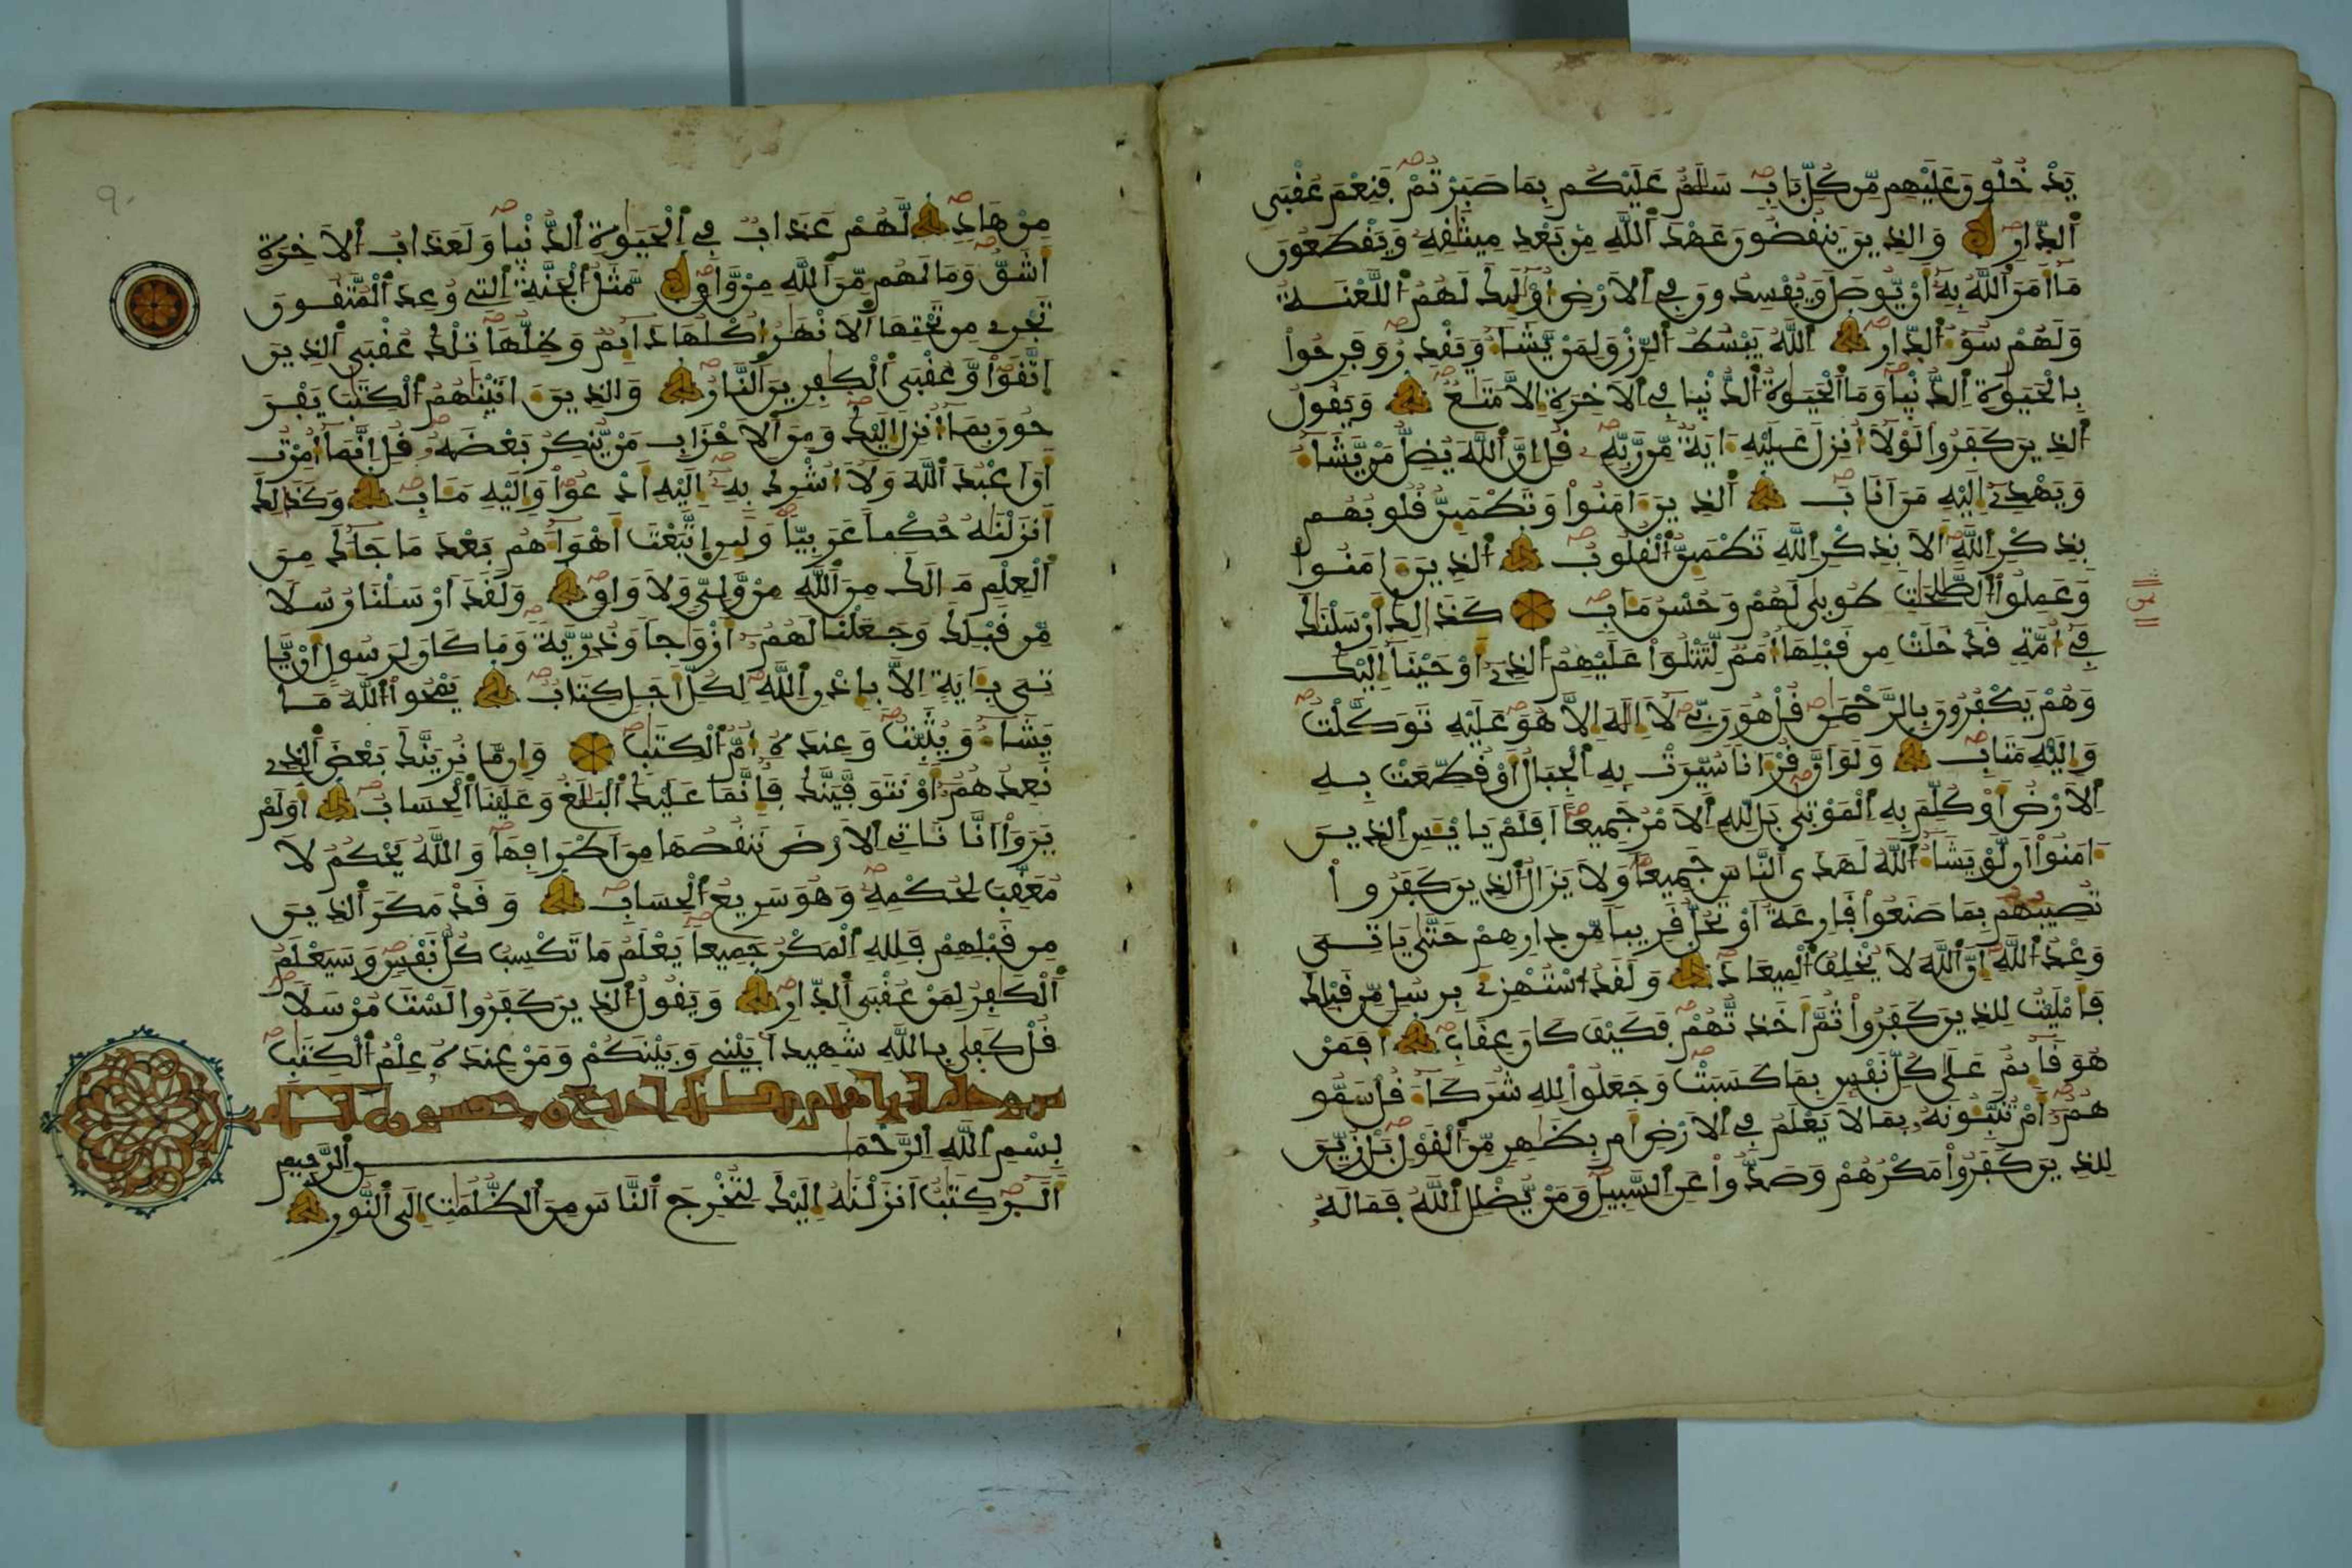 يَدْخُلُونَ عَلَيْهِم مِّن كُلِّ بَابٍ سَلَٰمٌ عَلَيْكُم بِمَا صَبَرْتُمْ فَنِعْمَ عُقْبَى
ٱلدَّارِ وَالذِينَ يَنقُضُونَ عَهْدَ ٱللَّهِ مِنۢ بَعْدِ مِيثَٰقِهِۦ وَيَقْطَعُونَ
مَآ أَمَرَ ٱللَّهُ بِهِۦٓ أَنْ يُّوصَلَ وَيُفْسِدُونَ فِي ٱلَارْضِ أُوْلَٰٓئِكَ لَهُمُ ٱللَّعْنَــةُ
وَلَهُمْ سُوٓءُ ٱلدِّارِ ٱللَّهُ يَبْسُطُ ٱلرِّزْقَ لِمَنْ يَّشَآءُ وَيَقْدِرُ وَفَرِحُواْ
بِالْحَيَوٰةِ ٱلدُّنْيَا وَمَا ٱلْحَيَوٰةُ ٱلدُّنْيَا فِي ٱلَاخِرَةِ إِلَّا مَتَٰعٌ وَيَقُولُ
ٱلذِينَ كَفَرُواْ لَوْلَآ أُنزِلَ عَلَيْهِ ءَايَةٌ مِّن رَّبِّهِۦ قُلِ انَّ ٱللَّهَ يُضِلُّ مَنْ يَّشَآءُ
وَيَهْدِےٓ إِلَيْهِ مَنَ اَنَابَ ٱلذِينَ ءَامَنُواْ وَتَطْمَئِنُّ قُلُوبُهُم
بِذِكْرِ ٱللَّهِ أَلَا بِذِكْرِ ٱللَّهِ تَطْمَئِنُّ ٱلْقُلُوبُ ٱلذِينَ ءَامَنُواْ
وَعَمِلُواْ ٱلصَّٰلِحَٰتِ طُوبَىٰ لَهُمْ وَحُسْنُ مَـَٔابٍ كَذَٰلِكَ أَرْسَلْنَٰكَ
فِےٓ أُمَّةٍ قَدْ خَلَتْ مِن قَبْلِهَآ أُمَمٌ لِّتَتْلُوَاْ عَلَيْهِمُ ٱلذِےٓ أَوْحَيْنَآ إِلَيْكَ
وَهُمْ يَكْفُرُونَ بِالرَّحْمَٰنِ قُلْ هُوَ رَبِّي لَآ إِلَٰهَ إِلَّا هُوَ عَلَيْهِ تَوَكَّلْتُ
وَإِلَيْهِ مَتَابِ وَلَوَ اَنَّ قُرْءَانًا سُيِّرَتْ بِهِ ٱلْجِبَالُ أَوْ قُطِّعَتْ بِــهِ
ٱلَارْضُ أَوْ كُلِّمَ بِهِ ٱلْمَوْتَىٰ بَل لِّلهِ ٱلَامْرُ جَمِيعًا أَفَلَمْ يَاْيْـَٔسِ ٱلذِيــنَ
ءَامَنُوٓاْ أَن لَّوْ يَشَآءُ ٱللَّهُ لَهَدَى ٱلنَّاسَ جَمِيعًا وَلَا يَزَالُ ٱلذِينَ كَفَرُواْ
تُصِيبُهُم بِمَا صَنَعُواْ قَارِعَةٌ أَوْ تَحُلُّ قَرِيبًا مِّن دِارِهِمْ حَتَّىٰ يَاتِــيَ
وَعْدُ ٱللَّهِ إِنَّ ٱللَّهَ لَا يُخْلِفُ ٱلْمِيعَادَ وَلَقَدُ ٱسْتُهْزِئَ بِرُسُلٍ مِّن قَبْلِكَ
فَأَمْلَيْتُ لِلذِينَ كَفَرُواْ ثُمَّ أَخَذتُّهُمْ فَكَيْفَ كَانَ عِقَابِ أَفَمَنْ
هُوَ قَآئِمٌ عَلَىٰ كُلِّ نَفْسٍ بِمَا كَسَبَتْ وَجَعَلُواْ لِلهِ شُرَكَآءَ قُلْ سَمُّو
هُمُۥٓ أَمْ تُنَبِّـُٔونَهُۥ بِمَا لَا يَعْلَمُ فِي ٱلَارْضِ أَم بِظَٰهِرٍ مِّنَ ٱلْقَوْلِ بَلْ زُيِّنَ
لِلذِينَ كَفَرُواْ مَكْرُهُمْ وَصَدُّواْ عَنِ ٱلسَّبِيلِ وَمَنْ يُّضْلِلِ ٱللَّهُ فَمَا لَهُۥ
مِنْ هَادٍ لَّهُمْ عَذَابٌ فِي ٱلْحَيَوٰةِ ٱلدُّنْيَا وَلَعَذَابُ ٱلَاخِرَةِ
أَشَقُّ وَمَا لَهُم مِّنَ ٱللَّهِ مِنْ وَّاقٍ مَّثَلُ ٱلْجَنَّةِ ٱلتِي وُعِدَ ٱلْمُتَّقُــونَ
تَجْرِے مِن تَحْتِهَا ٱلَانْهَٰرُ أُكْلُهَا دَآئِمٌ وَظِلُّهَا تِلْكَ عُقْبَى ٱلذِينَ
ٱتَّقَواْ وَّعُقْبَى ٱلْكَٰفِرِينَ ٱلنَّارُ وَالذِينَ ءَاتَيْنَٰهُمُ ٱلْكِتَٰبَ يَفْرَ
حُونَ بِمَآ أُنزِلَ إِلَيْكَ وَمِنَ ٱلَاحْزَابِ مَنْ يُّنكِرُ بَعْضَهُۥ قُلِ انَّمَآ أُمِرْتُ
أَنَ اَعْبُدَ ٱللَّهَ وَلَآ أُشْرِكَ بِهِۦٓ إِلَيْهِ أَدْعُواْ وَإِلَيْهِ مَـَٔابِ وَكَذَٰلِكَ
أَنزَلْنَٰهُ حُكْمًا عَرَبِيًّا وَلَئِنِ ٱتَّبَعْتَ أَهْوَآءَهُم بَعْدَ مَا جَآءَكَ مِنَ
ٱلْعِلْمِ مَا لَكَ مِنَ ٱللَّهِ مِنْ وَّلِيٍّ وَلَا وَاقٍ وَلَقَدَ اَرْسَلْنَا رُسُلًا
مِّن قَبْلِكَ وَجَعَلْنَا لَهُمُۥٓ أَزْوَٰجًا وَذُرِّيَّةً وَمَا كَانَ لِرَسُولٍ أَنْ يَّا
تِيَ بِـَٔايَةٍ اِلَّا بِإِذْنِ ٱللَّهِ لِكُلِّ أَجَلٍ كِتَابٌ يَمْحُواْ ٱللَّهُ مَــا
يَشَآءُ وَيُثَبِّتُ وَعِندَهُۥٓ أُمُّ ٱلْكِتَٰبِ وَإِن مَّا نُرِيَنَّكَ بَعْضَ ٱلذِے
نَعِدُهُمُۥٓ أَوْ نَتَوَفَّيَنَّكَ فَإِنَّمَا عَلَيْكَ ٱلْبَلَٰغُ وَعَلَيْنَا ٱلْحِسَابُ أَوَلَمْ
يَرَوَاْ اَنَّا نَاتِي ٱلَارْضَ نَنقُصُهَا مِنَ اَطْرَافِهَا وَاللَّهُ يَحْكُمُ لَا
مُعَقِّبَ لِحُكْمِهِۦ وَهُوَ سَرِيعُ ٱلْحِسَابِ وَقَدْ مَكَرَ ٱلذِيــنَ
مِن قَبْلِهِمْ فَلِلهِ ٱلْمَكْرُ جَمِيعًا يَعْلَمُ مَا تَكْسِبُ كُلُّ نَفْسٍ وَسَيَعْلَمُ
ٱلْكَٰفِرُ لِمَنْ عُقْبَى ٱلدِّارِ وَيَقُولُ ٱلذِينَ كَفَرُواْ لَسْتَ مُرْسَلًا
قُلْ كَفَىٰ بِاللَّهِ شَهِيدًا بَيْنِي وَبَيْنَكُمْ وَمَنْ عِندَهُۥ عِلْمُ ٱلْكِتَٰبِ
بِسْمِ ٱللَّهِ ٱلرَّحْمَٰــنِ ٱلرَّحِيمِ
أَلَٓرٰ كِتَٰبٌ أَنزَلْنَٰهُ إِلَيْكَ لِتُخْرِجَ ٱلنَّاسَ مِنَ ٱلظُّلُمَٰتِ إِلَى ٱلنُّورِ